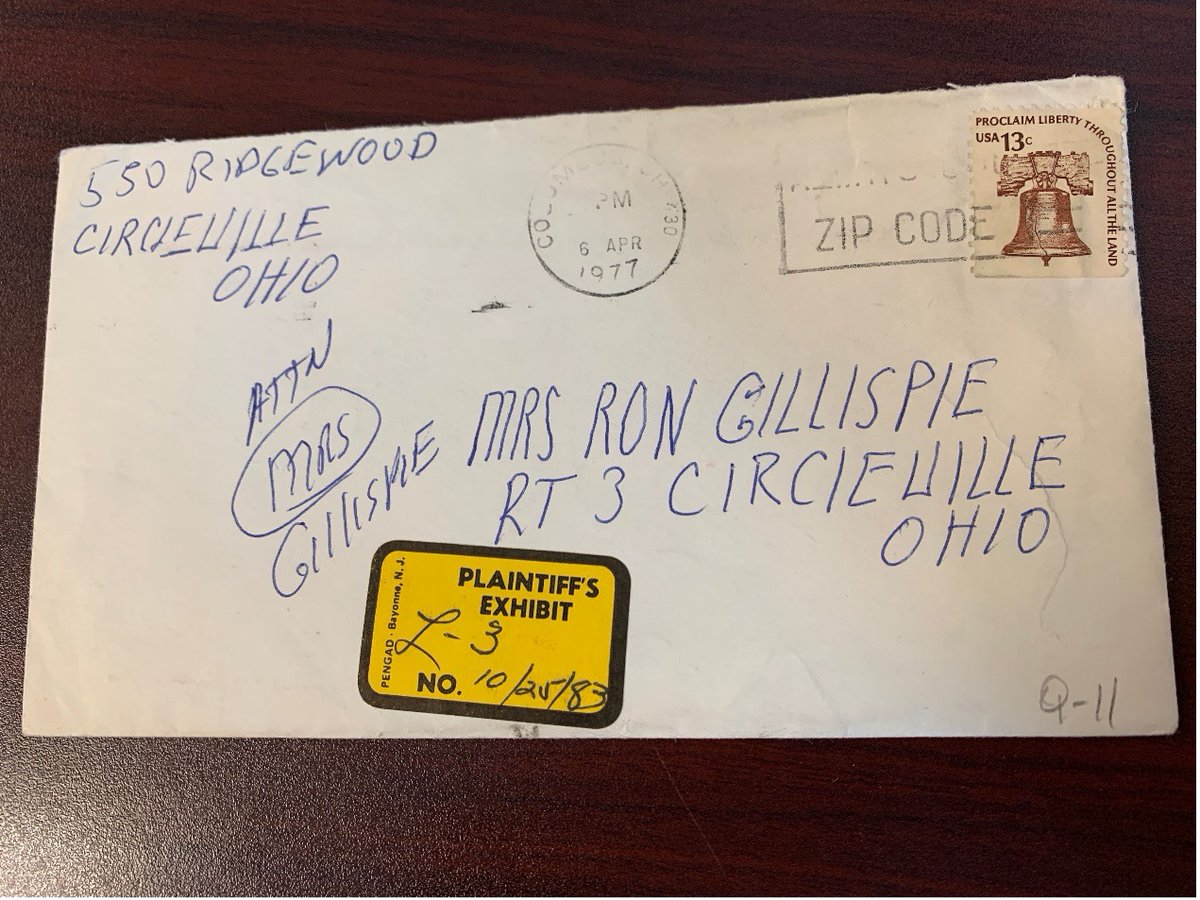 550 RIDGEWOOD
CIRCLEVILLE
OHIO
PM
6 APR
1977
ZIP CODE
PROCLAIM LIBERTY THROUGHOUT ALL THE LAND
USA 13c
ATTN
MRS
GILLISPIE
MRS RON GILLISPIE
RT 3 CIRCLEVILLE
OHIO
PENGAD - Bayonne, N. J.
PLAINTIFF'S
EXHIBIT
L-3
NO. 10/25/83
Q-11